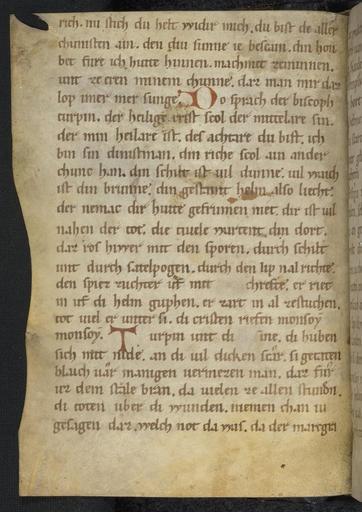 rich. nu stich du helt widir mich. du bist de aller
chunisten ain. den diu sunne ie bescain. din hou
bet fure ich hutte hinnen. machmut zeminnen.
unt ze eren minem chunne. daz man mir daz
lop imer mer singe. Do sprach der biscoph
turpin. der heilige crist scol der mittelare sin.
der min heilare ist. des achtare du bist. ich
bin sin dinistman. din riche scol ain ander
chunc han. din schilt ist vil dunne. vil waich
ist din brunne. din gestaint helm also liecht.
der nemac dir hutte gefrumen niet. dir ist vil
nahen der tot. die tiuele wartent din dort.
daz ros hiwer mit den sporen. durch schilt
unt durch satelpogen. durch den lip nal richte.
den spiez zuchter uf mit chrefte. er riet
in uf di helm guphen. er zart in al zestuchen.
tot viel er unter si. di cristen riefen monsoy
monsoy. Turpin unt di sine. di huben
sich mit nide. an di vil dicken scar. si getaten
blaich uar manigen uermezen man. daz fiur
uz dem stale bran. da uielen ze allen stunden.
di toten uber di wunden. niemen chan iu
gesagen daz. welch not da was. da der margra